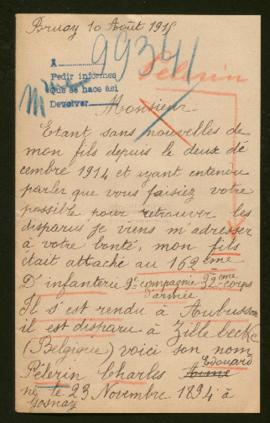 Bruay 10 Août 1915
99341
A
Pedir informes
que se hace así
Devolver
Pelerin
Monsieur
Etant sans nouvelles de
mon fils depuis le deux dé
cembre 1914 et ayant entendu
parler que vous faisiez votre
possible pour retrouver les
disparus je viens m'adresser
à votre bonté, mon fils
était attaché au 162ème
D'infanterie 9e compagnie 32ème corps
d'armée
Il s'est rendu à Aubusson
il est disparu à Zillebecke
(Belgique) voici son nom
Edouard
Pélerin Charles Aimé
né le 23 Novembre 1894 à
Gosnay